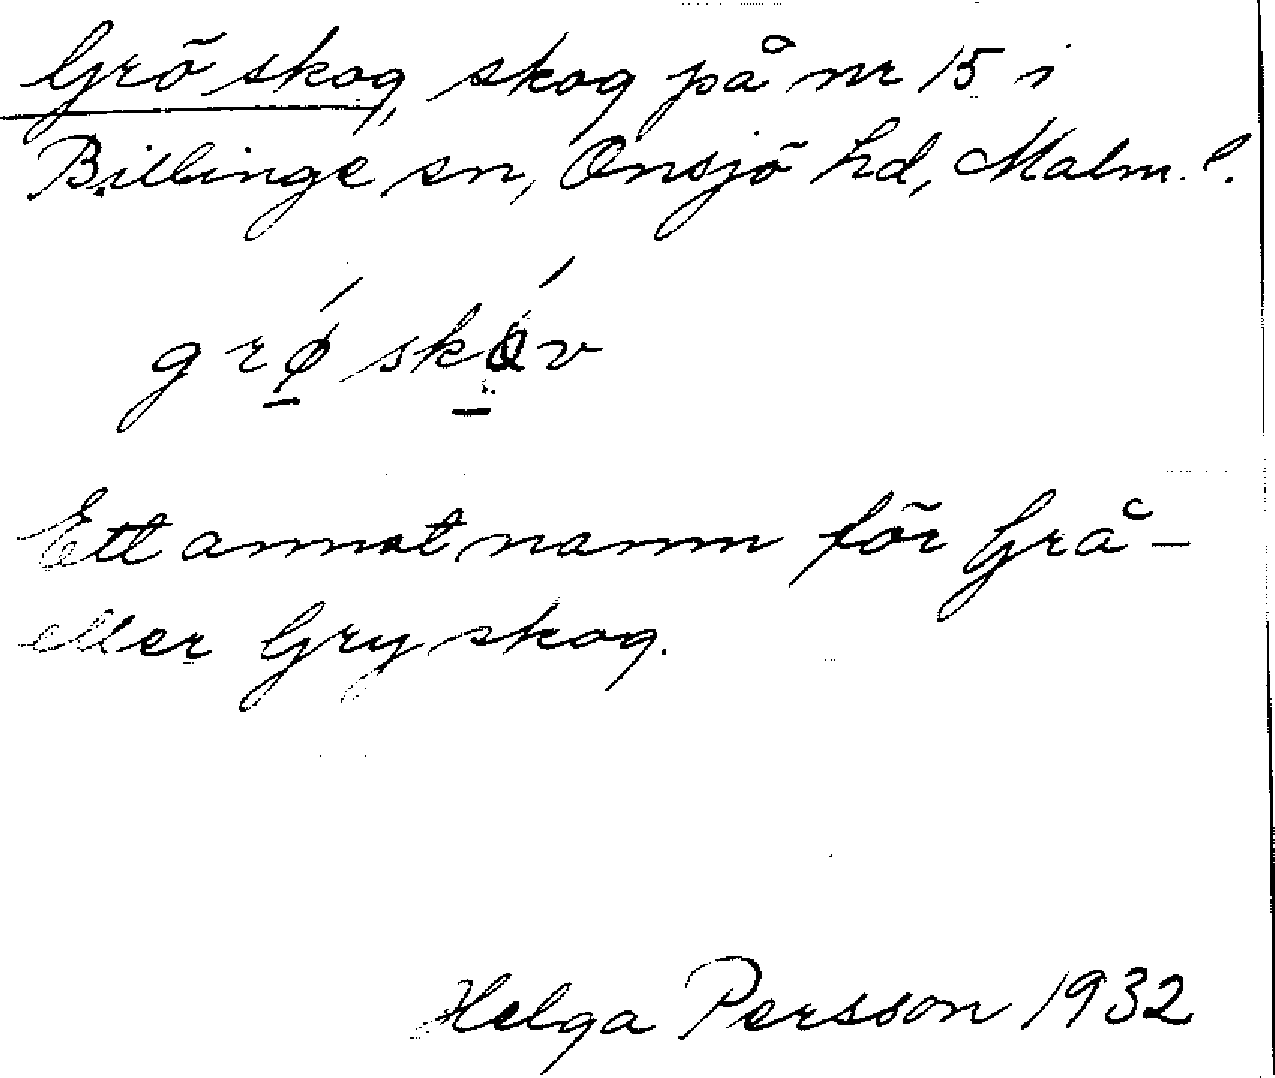 Gröskog, skog på nr 15 i
Billinge sn, Onsjö hd, Malm. l.
grǿ̱ skɑ̱́v
Ett annat namn för Grå-
eller Gryskog.
Helga Persson 1932